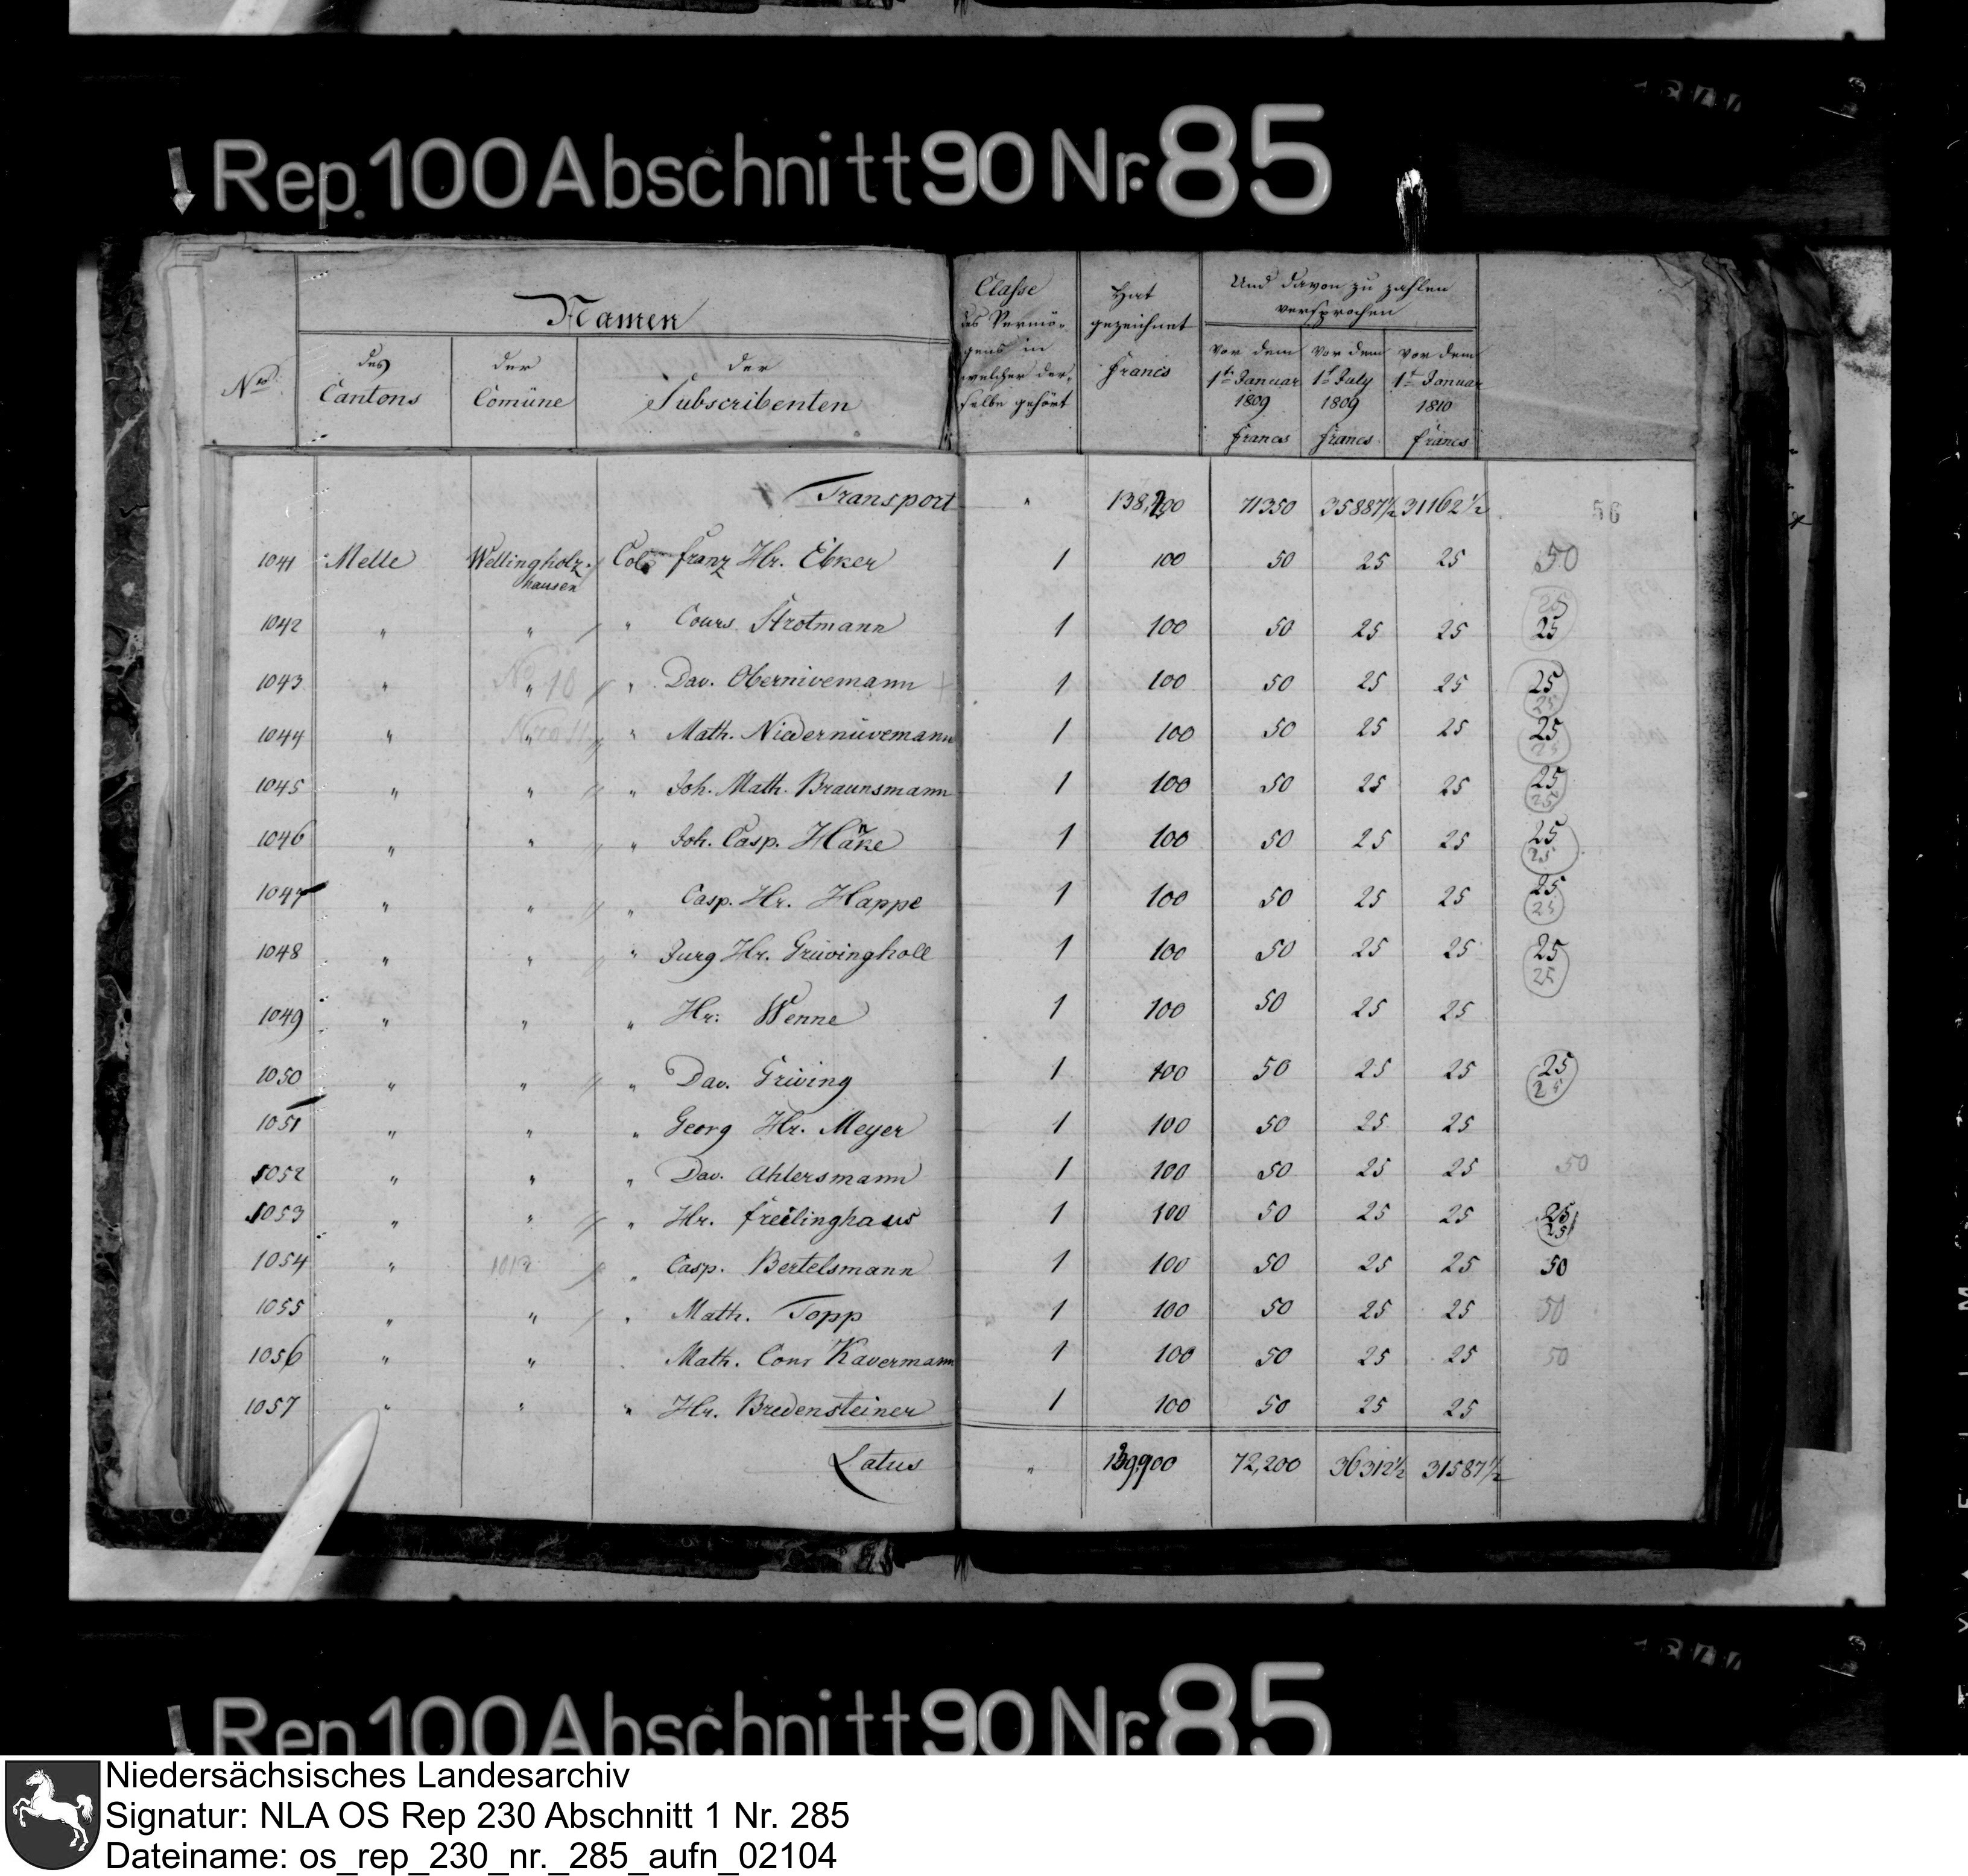 Rep. 100 Abschnitt 90 Nr. 85
Namen
Nro. des Cantons der Comüne der Subscribenten
Classe des Vermö-gens in welcher der-selbe gehört
Hat gezeichnet francs
Und davon zu zahlen versprochen
vor dem 1t Januar 1809 francs
vor dem 1t July 1809 francs
vor dem 1t Januar 1810 francs
Transport " 138,200 71350 35887½ 31162½ 56
1041 Melle Wellingholz-hausen Col. franz Hr. Ebker 1 100 50 25 25 50
1042 " " " Conr. Strotmann 1 100 50 25 25 25 25
1043 " " No 10 " Dav. Obernivemann 1 100 50 25 25 25 25
1044 " " " Math. Niedernüvemann 1 100 50 25 25 25 25
1045 " " " Joh. Math. Braunsmann 1 100 50 25 25 25 25
1046 " " " Joh. Casp. 1 100 50 25 25 25 25
1047 " " " Casp. Hr. Happe 1 100 50 25 25 25 25
1048 " " " Jurg Hr. Grüvingholl 1 100 50 25 25 25 25
1049 " " " Hr: Wenne 1 100 50 25 25
1050 " " " Dav. Griving 1 100 50 25 25 25 25
1051 " " " Georg Hr. Meyer 1 100 50 25 25
1052 " " " Dav. Ahlersmann 1 100 50 25 25 50
1053 " " " Hr. freilinghaus 1 100 50 25 25 25 25
1054 " " " Casp. Bertelsmann 1 100 50 25 25 50
1055 " " " Math. Topp 1 100 50 25 25 50
1056 " " Math. Conr Kavermann 1 100 50 25 25 50
1057 " " " Hr. Bredensteiner 1 100 50 25 25
Latus " 139,900 72,200 36312½ 31587½
Rep 100 Abschnitt 90 Nr. 85
Niedersächsisches Landesarchiv
Signatur: NLA OS Rep 230 Abschnitt 1 Nr. 285
Dateiname: os_rep_230_nr._285_aufn_02104